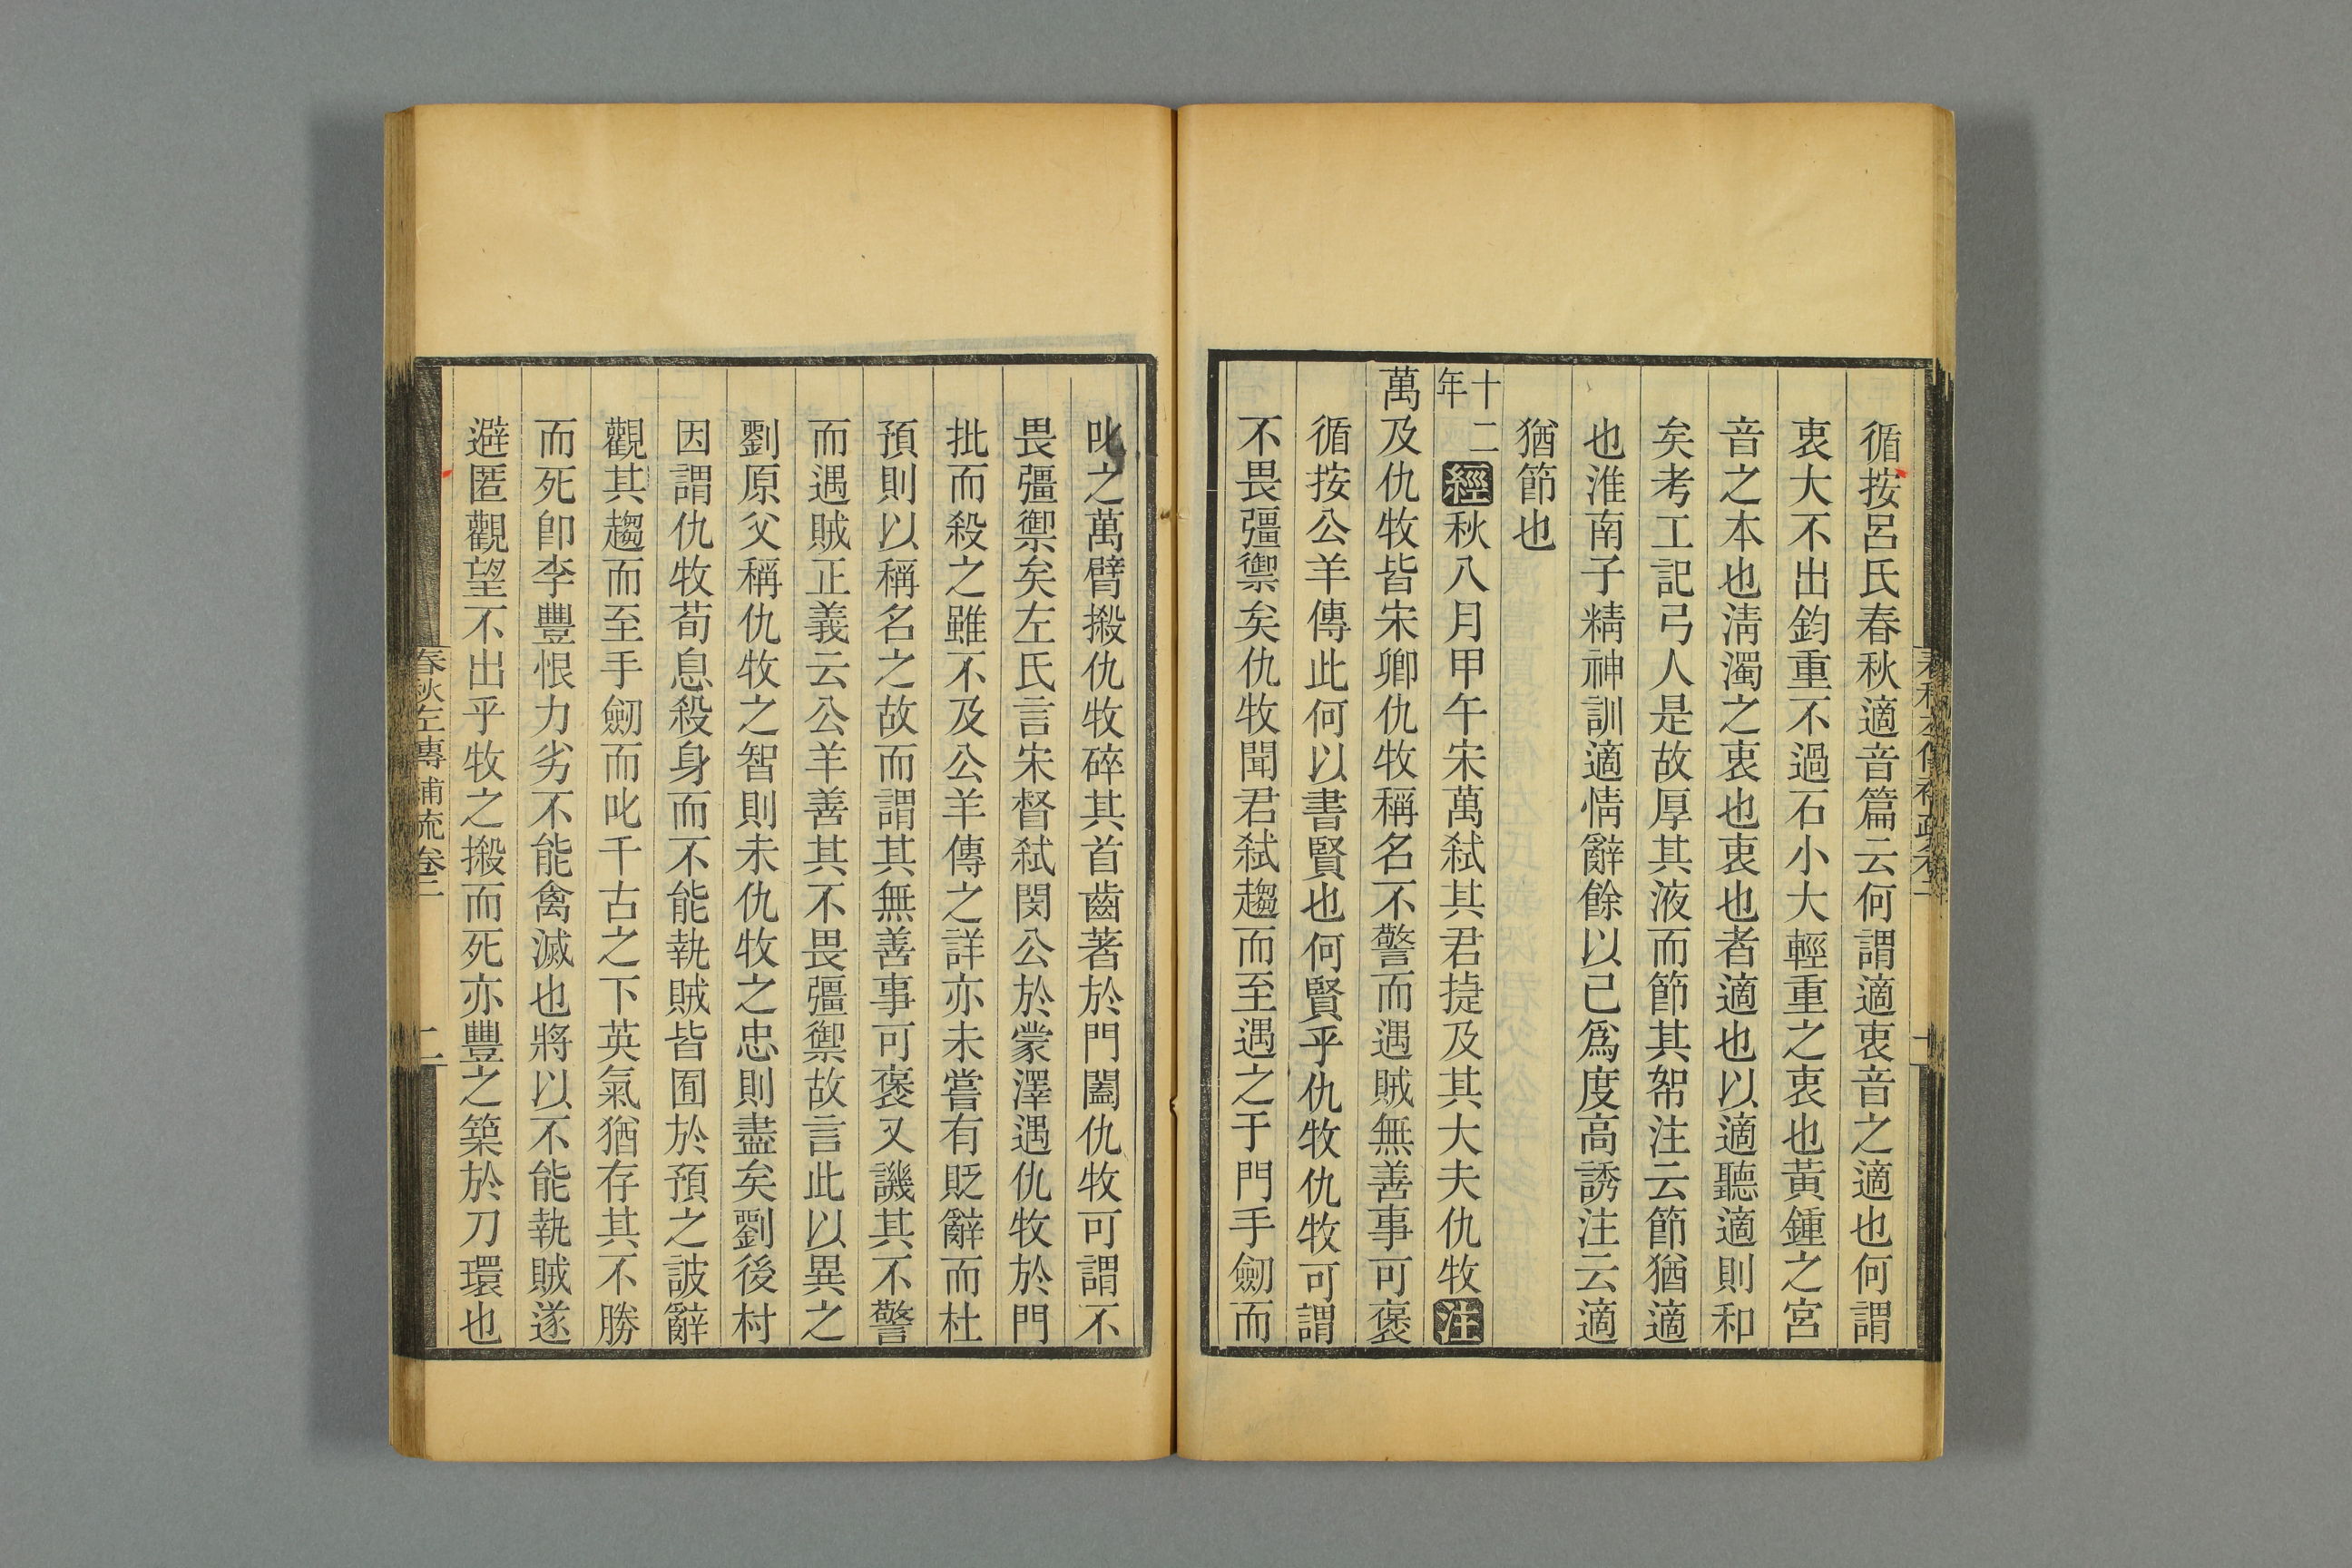 循按呂氏春秋適音篇云何謂適衷音之適也何謂
衷大不出鈞重不過石小大輕重之衷也黃鍾之宮
音之本也淸濁之衷也衷也者適也以適聽適則和
矣考工記弓人是故厚其液而節其帤注云節猶適
也淮南子精神訓適情辭餘以己爲度高誘注云適
猶節也
十二年經秋八月甲午宋萬弒其君捷及其大夫仇牧注
萬及仇牧皆宋卿仇牧稱名不警而遇賊無善事可褒
循按公羊傳此何以書賢也何賢乎仇牧仇牧可謂
不畏彊禦矣仇牧聞君弒趨而至遇之于門手劒而
叱之萬臂搬仇牧碎其首齒著於門闔仇牧可謂不
畏彊禦矣左氏言宋督弒閔公於蒙澤遇仇牧於門
批而殺之雖不及公羊傳之詳亦未嘗有貶辭而杜
預則以稱名之故而謂其無善事可褒又譏其不警
而遇賊正義云公羊善其不畏彊禦故言此以異之
劉原父稱仇牧之智則未仇牧之忠則盡矣劉後村
因謂仇牧荀息殺身而不能執賊皆囿於預之詖辭
觀其趨而至手劒而叱千古之下英氣猶存其不勝
而死卽李豐恨力劣不能禽滅也將以不能執賊遂
避匿觀望不出乎牧之搬而死亦豐之築於刀環也
春秋左傳補疏卷二
二